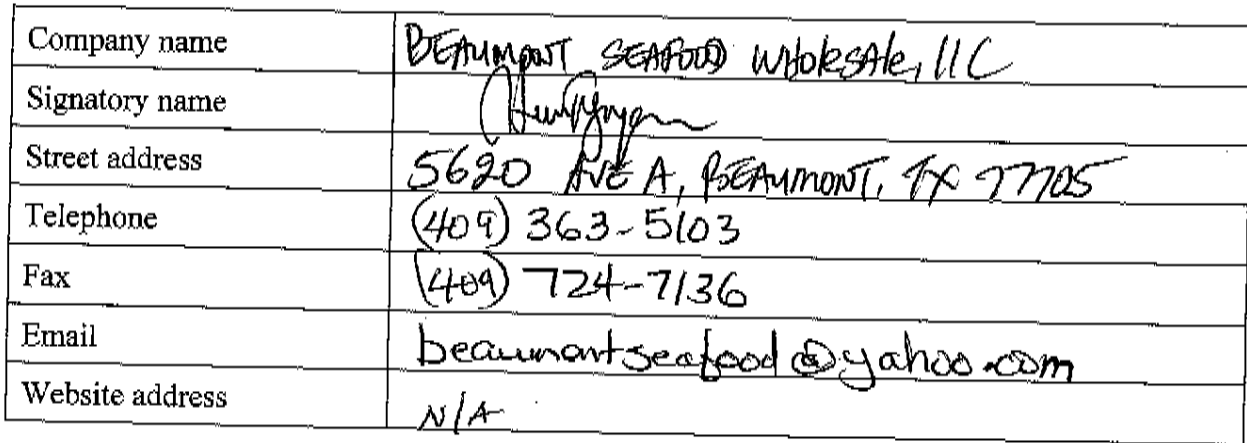 Company name BEAUMONT SEAFOOD WHOlesAle, llC
Signatory name
Street address 5620 AVE A, BEAUMONT, TX 77705
Telephone (409) 363-5103
Fax (409) 724-7136
Email beaumontseafood@yahoo.com
Website address N/A